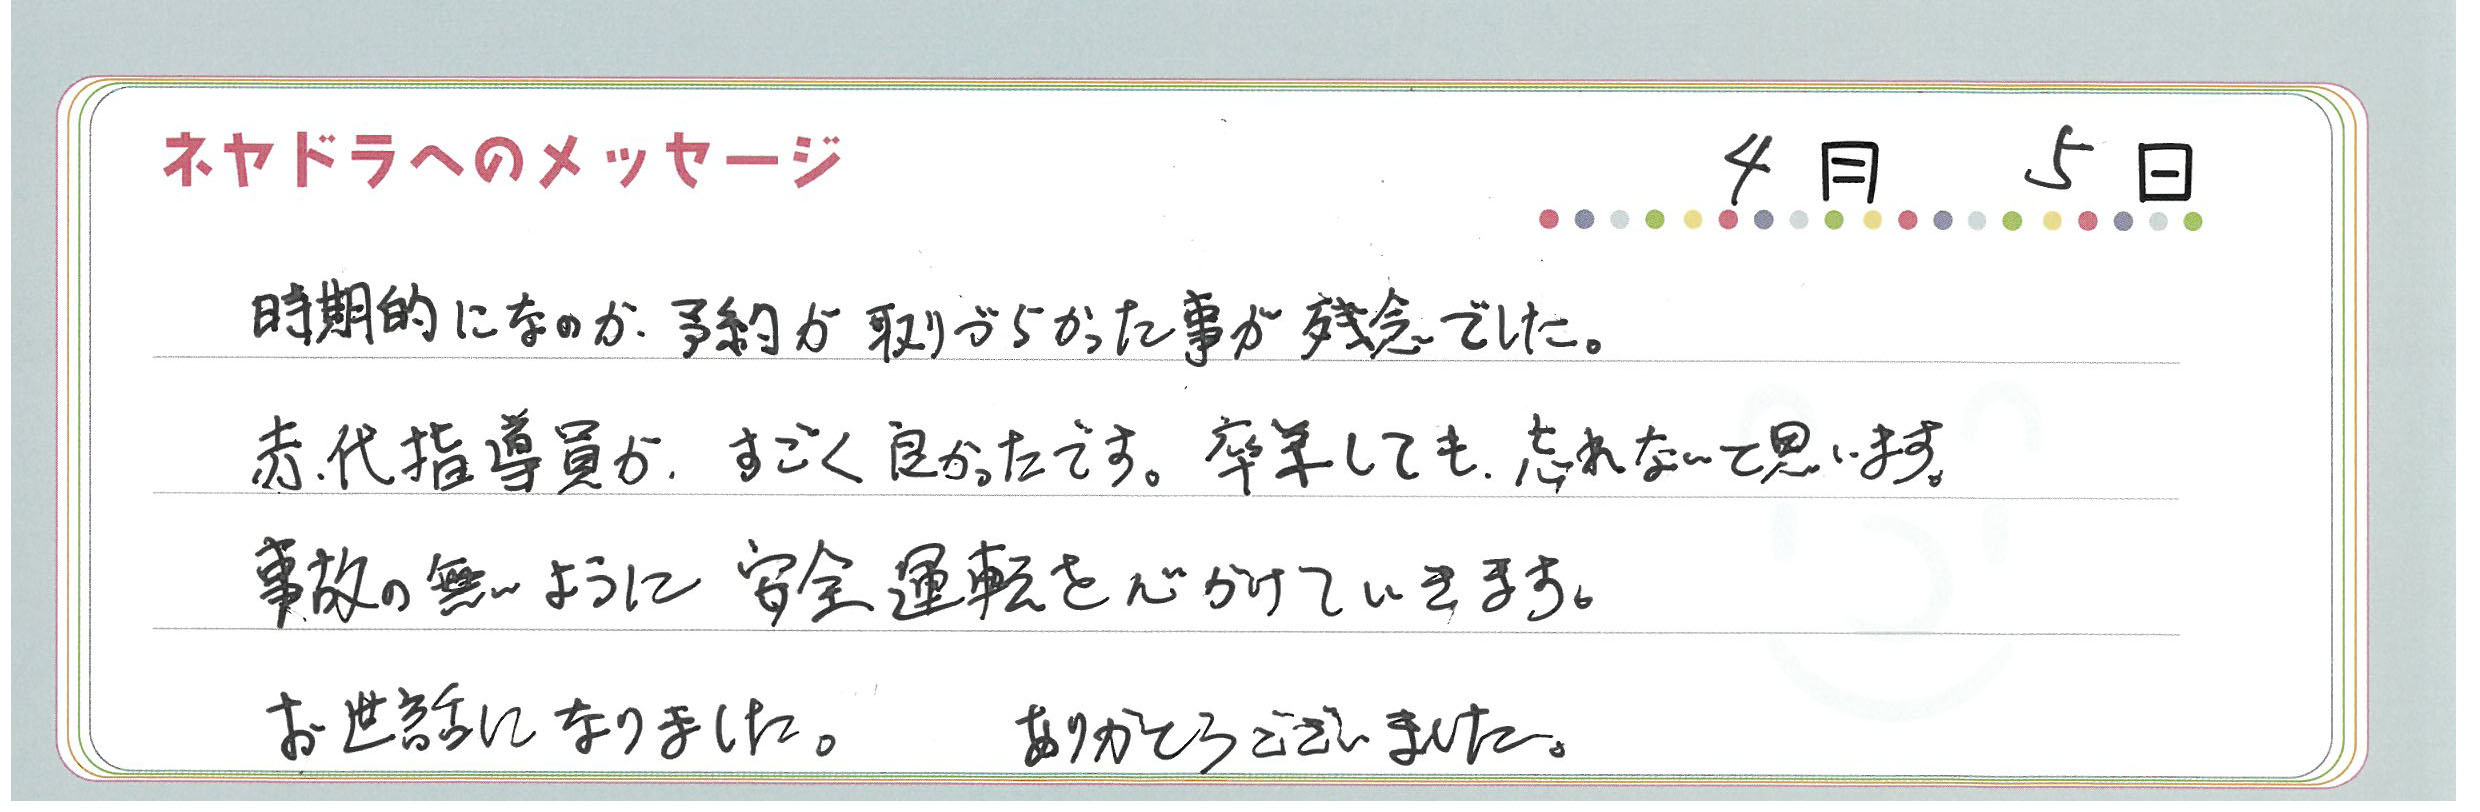 ネヤドラへのメッセージ
4月 5日
時期的になのか、予約が取りづらかった事が残念でした。
赤代指導員が、すごく良かったです。卒業しても、忘れないと思います。
事故の無いように安全運転を心がけていきます。
お世話になりました。 ありがとうございました。